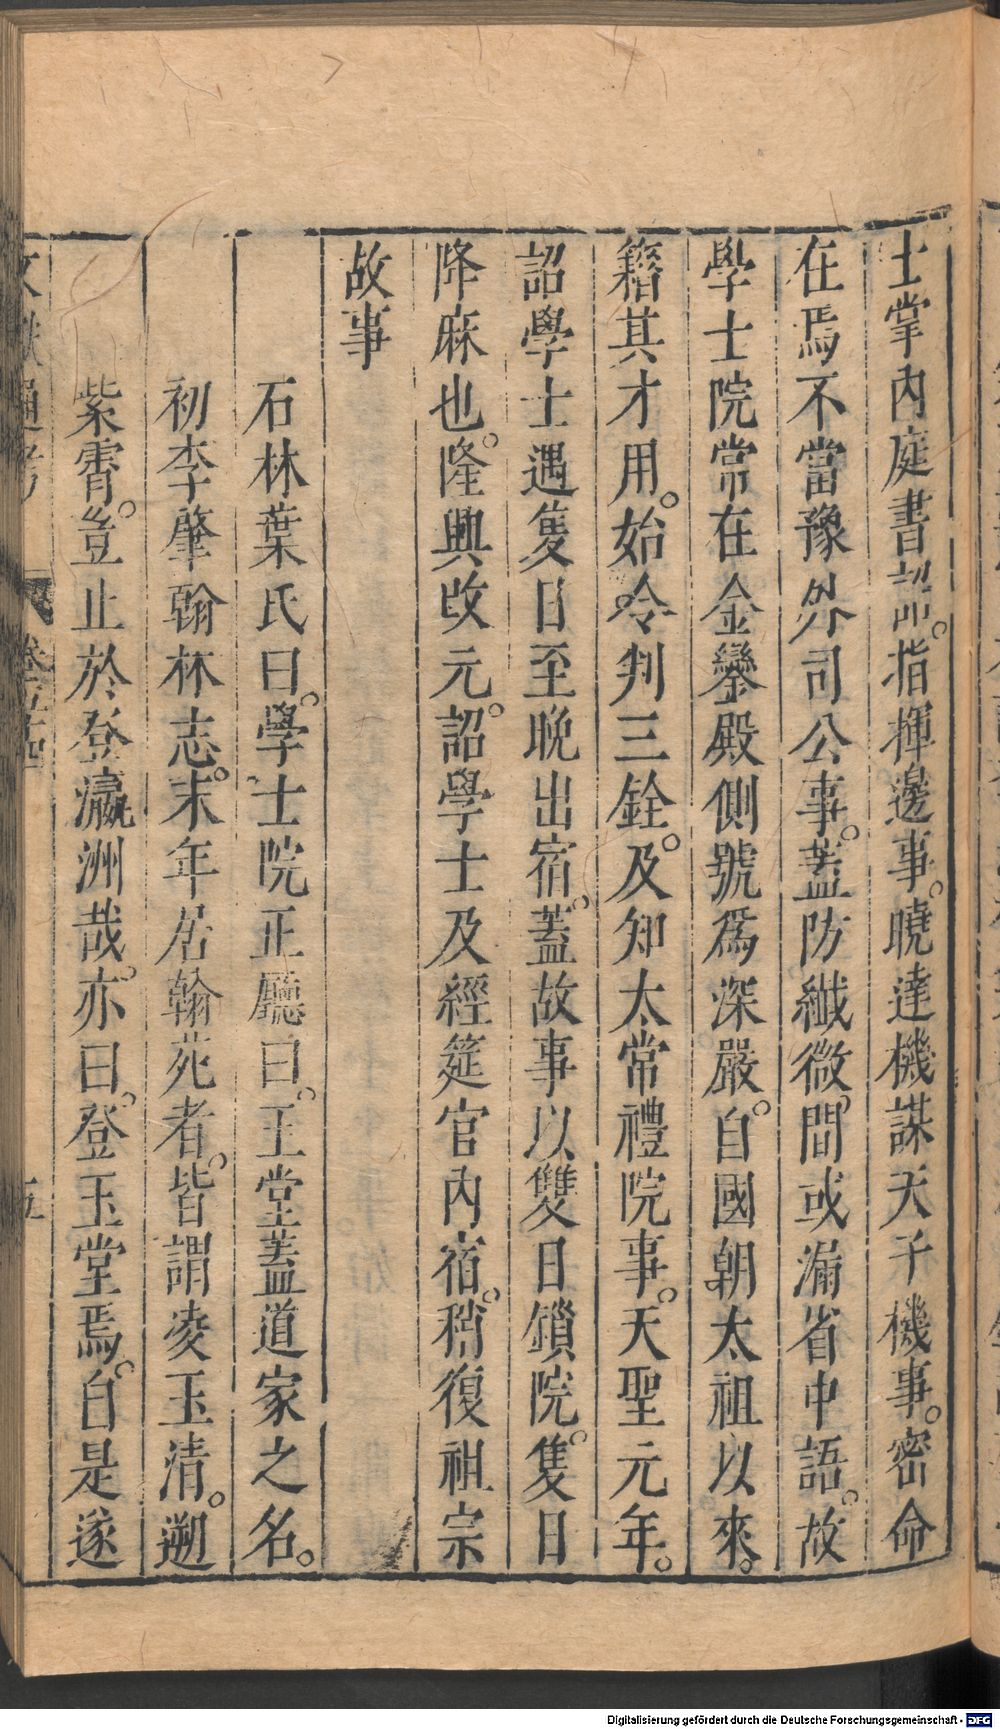 士掌內庭書詔。指揮邊事。曉達機謀天子機事。密命
在焉不當豫外司公事。蓋防纖微。間或漏省中語。故
學士院常在金鑾殿側號爲深嚴。自國朝太祖以來。
籍其才用。始令判三銓。及知太常禮院事。天聖元年。
詔學士遇隻日至晚出宿。蓋故事以雙日鎖院。隻日
降麻也。隆興改元。詔學士及經筵官內宿。稍復祖宗
故事
石林葉氏曰。學士院正廳曰。玉堂蓋道家之名。
初李肇翰林志。末年居翰苑者。皆謂凌玉清。遡
紫霄。豈止於登瀛洲哉。亦曰。登玉堂焉。自是遂
文獻通考
卷五十四
五
Digitalisierung gefördert durch die Deutsche Forschungsgemeinschaft - DFG